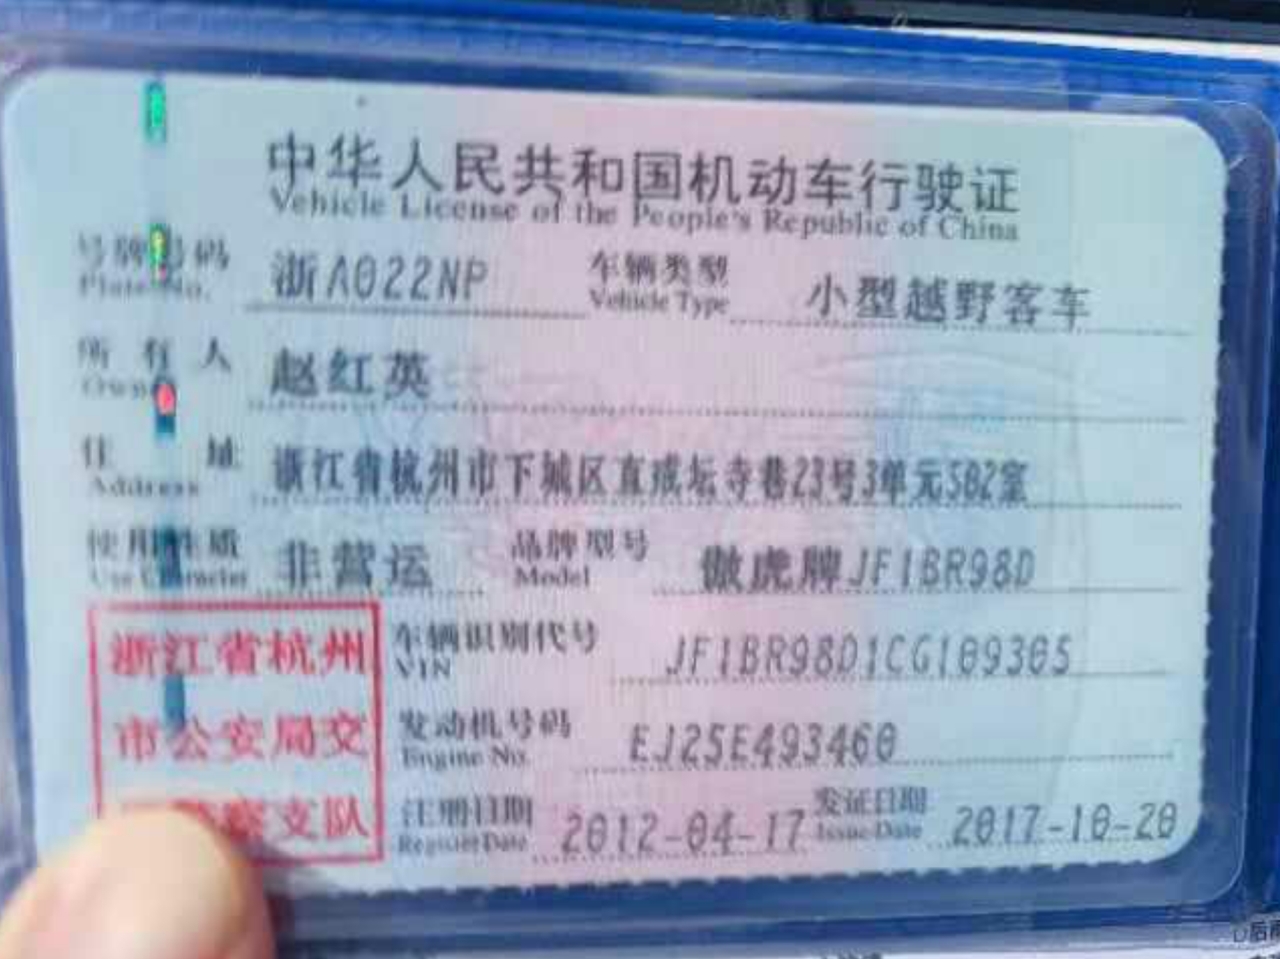 中华人民共和国机动车行驶证
Vehicle License of the People's Republic of China
号牌号码 浙A022NP 车辆类型 小型越野客车
Plate No. Vehicle Type
所有人 赵红英
Owner
住址 浙江省杭州市下城区直戒坛寺巷23号3单元502室
Address
使用性质 非营运 品牌型号 傲虎牌JF1BR98D
Use Character Model
浙江省杭州
市公安局交
察支队
车辆识别代号 JF1BR98D1CG109305
VIN
发动机号码 EJ25E493460
Engine No.
注册日期 2012-04-17 发证日期 2017-10-20
Register Date Issue Date